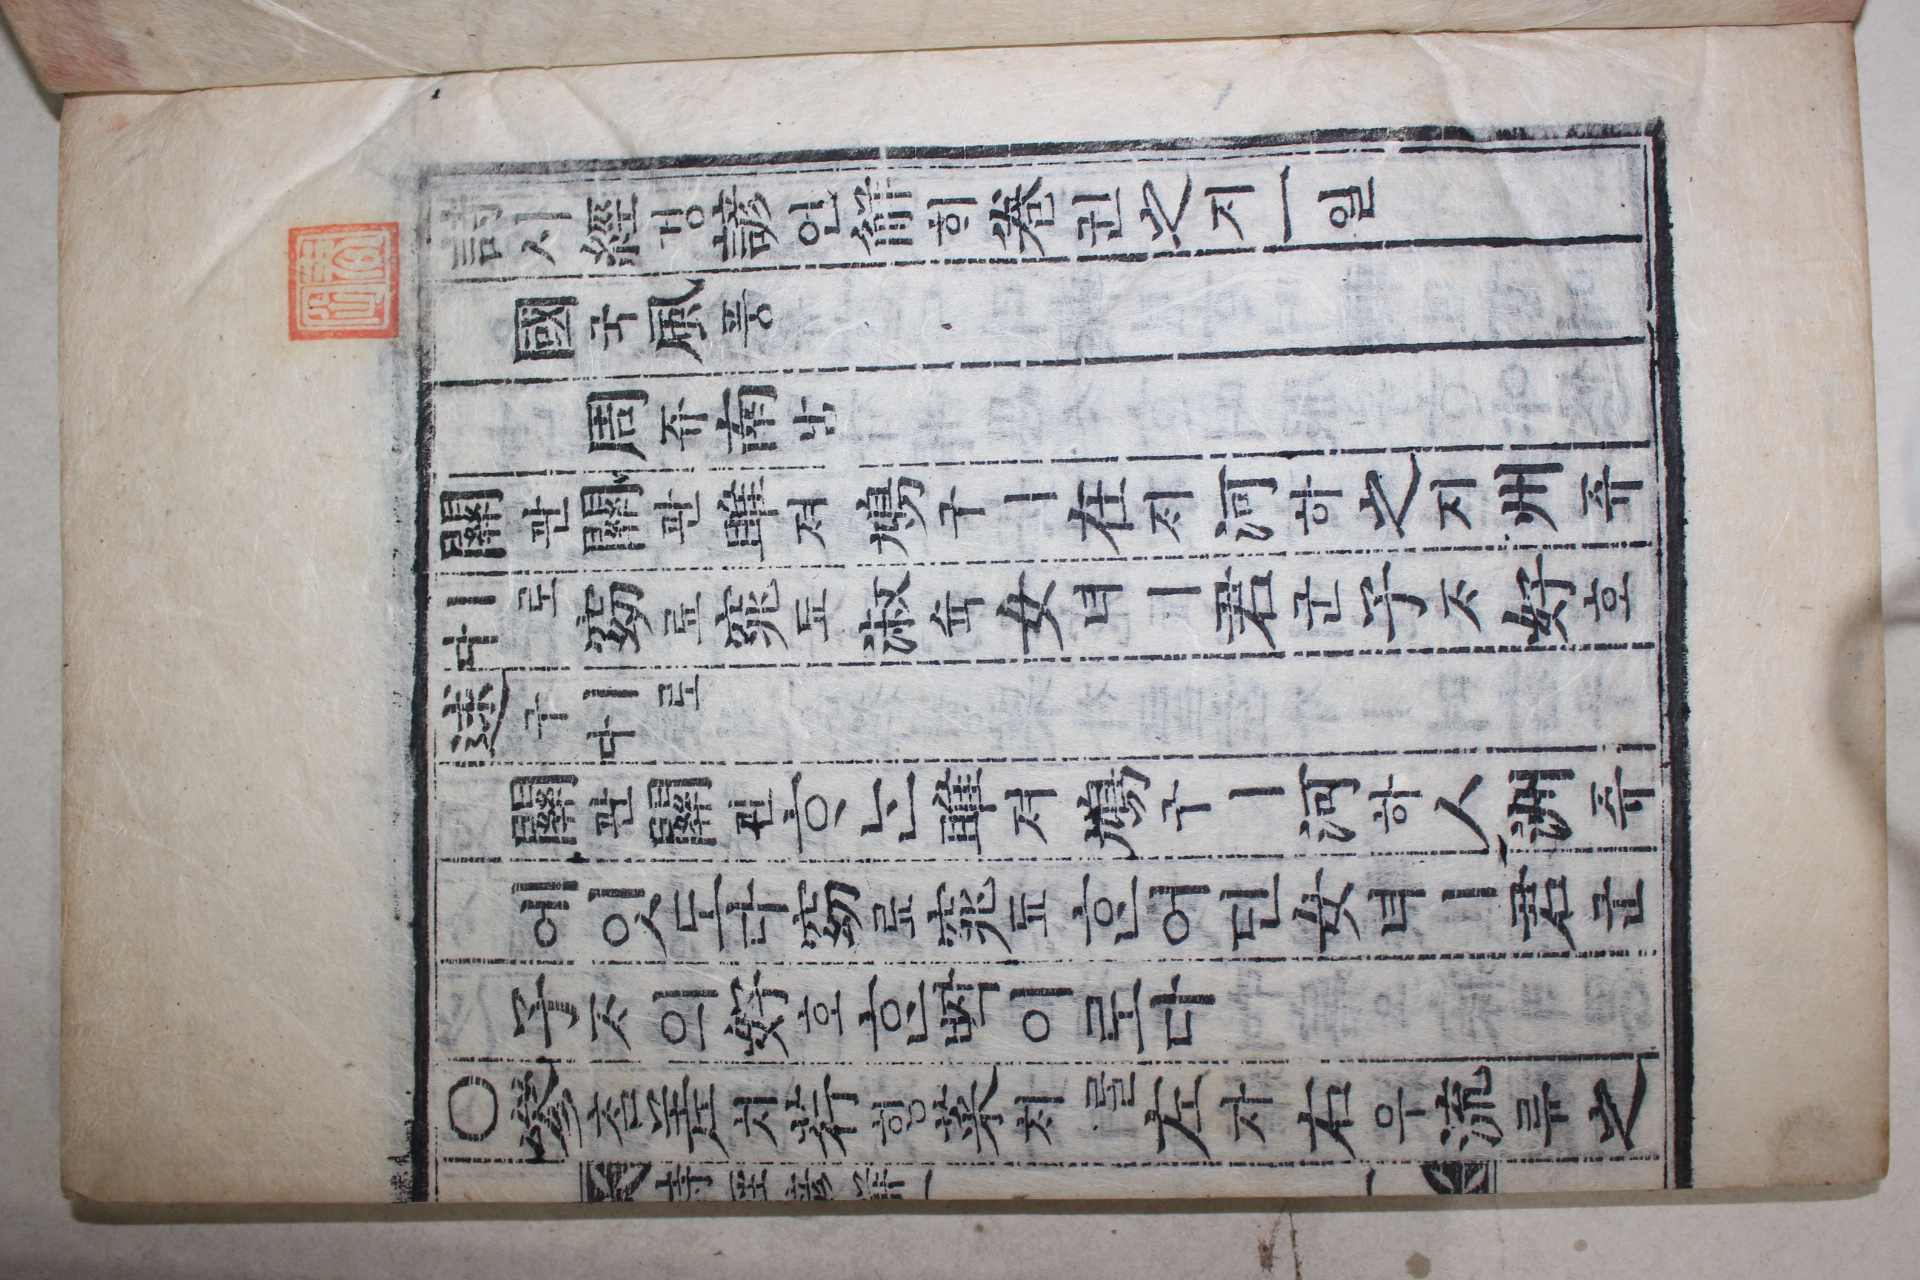 詩시經경諺언解ᄒᆡ卷권之지一일
國국風풍
周쥬南남
關관關관雎져鳩구ㅣ在ᄌᆡ河하之지州쥬
ㅣ로다窈료窕됴淑슉女녀ㅣ君군子ᄌᆞ好호
逑구ㅣ로다
關관關관ᄒᆞᄂᆞᆫ雎져鳩구ㅣ河하ㅅ洲쥬
에잇도다窈료窕됴ᄒᆞᆫ어딘女녀ㅣ君군
子ᄌᆞ의好호ᄒᆞᆫᄧᅡᆨ이로다
○參ᄎᆞᆷ差치荇ᄒᆡᆼ菜ᄎᆡ를左자右우流류之
詩經諺解一